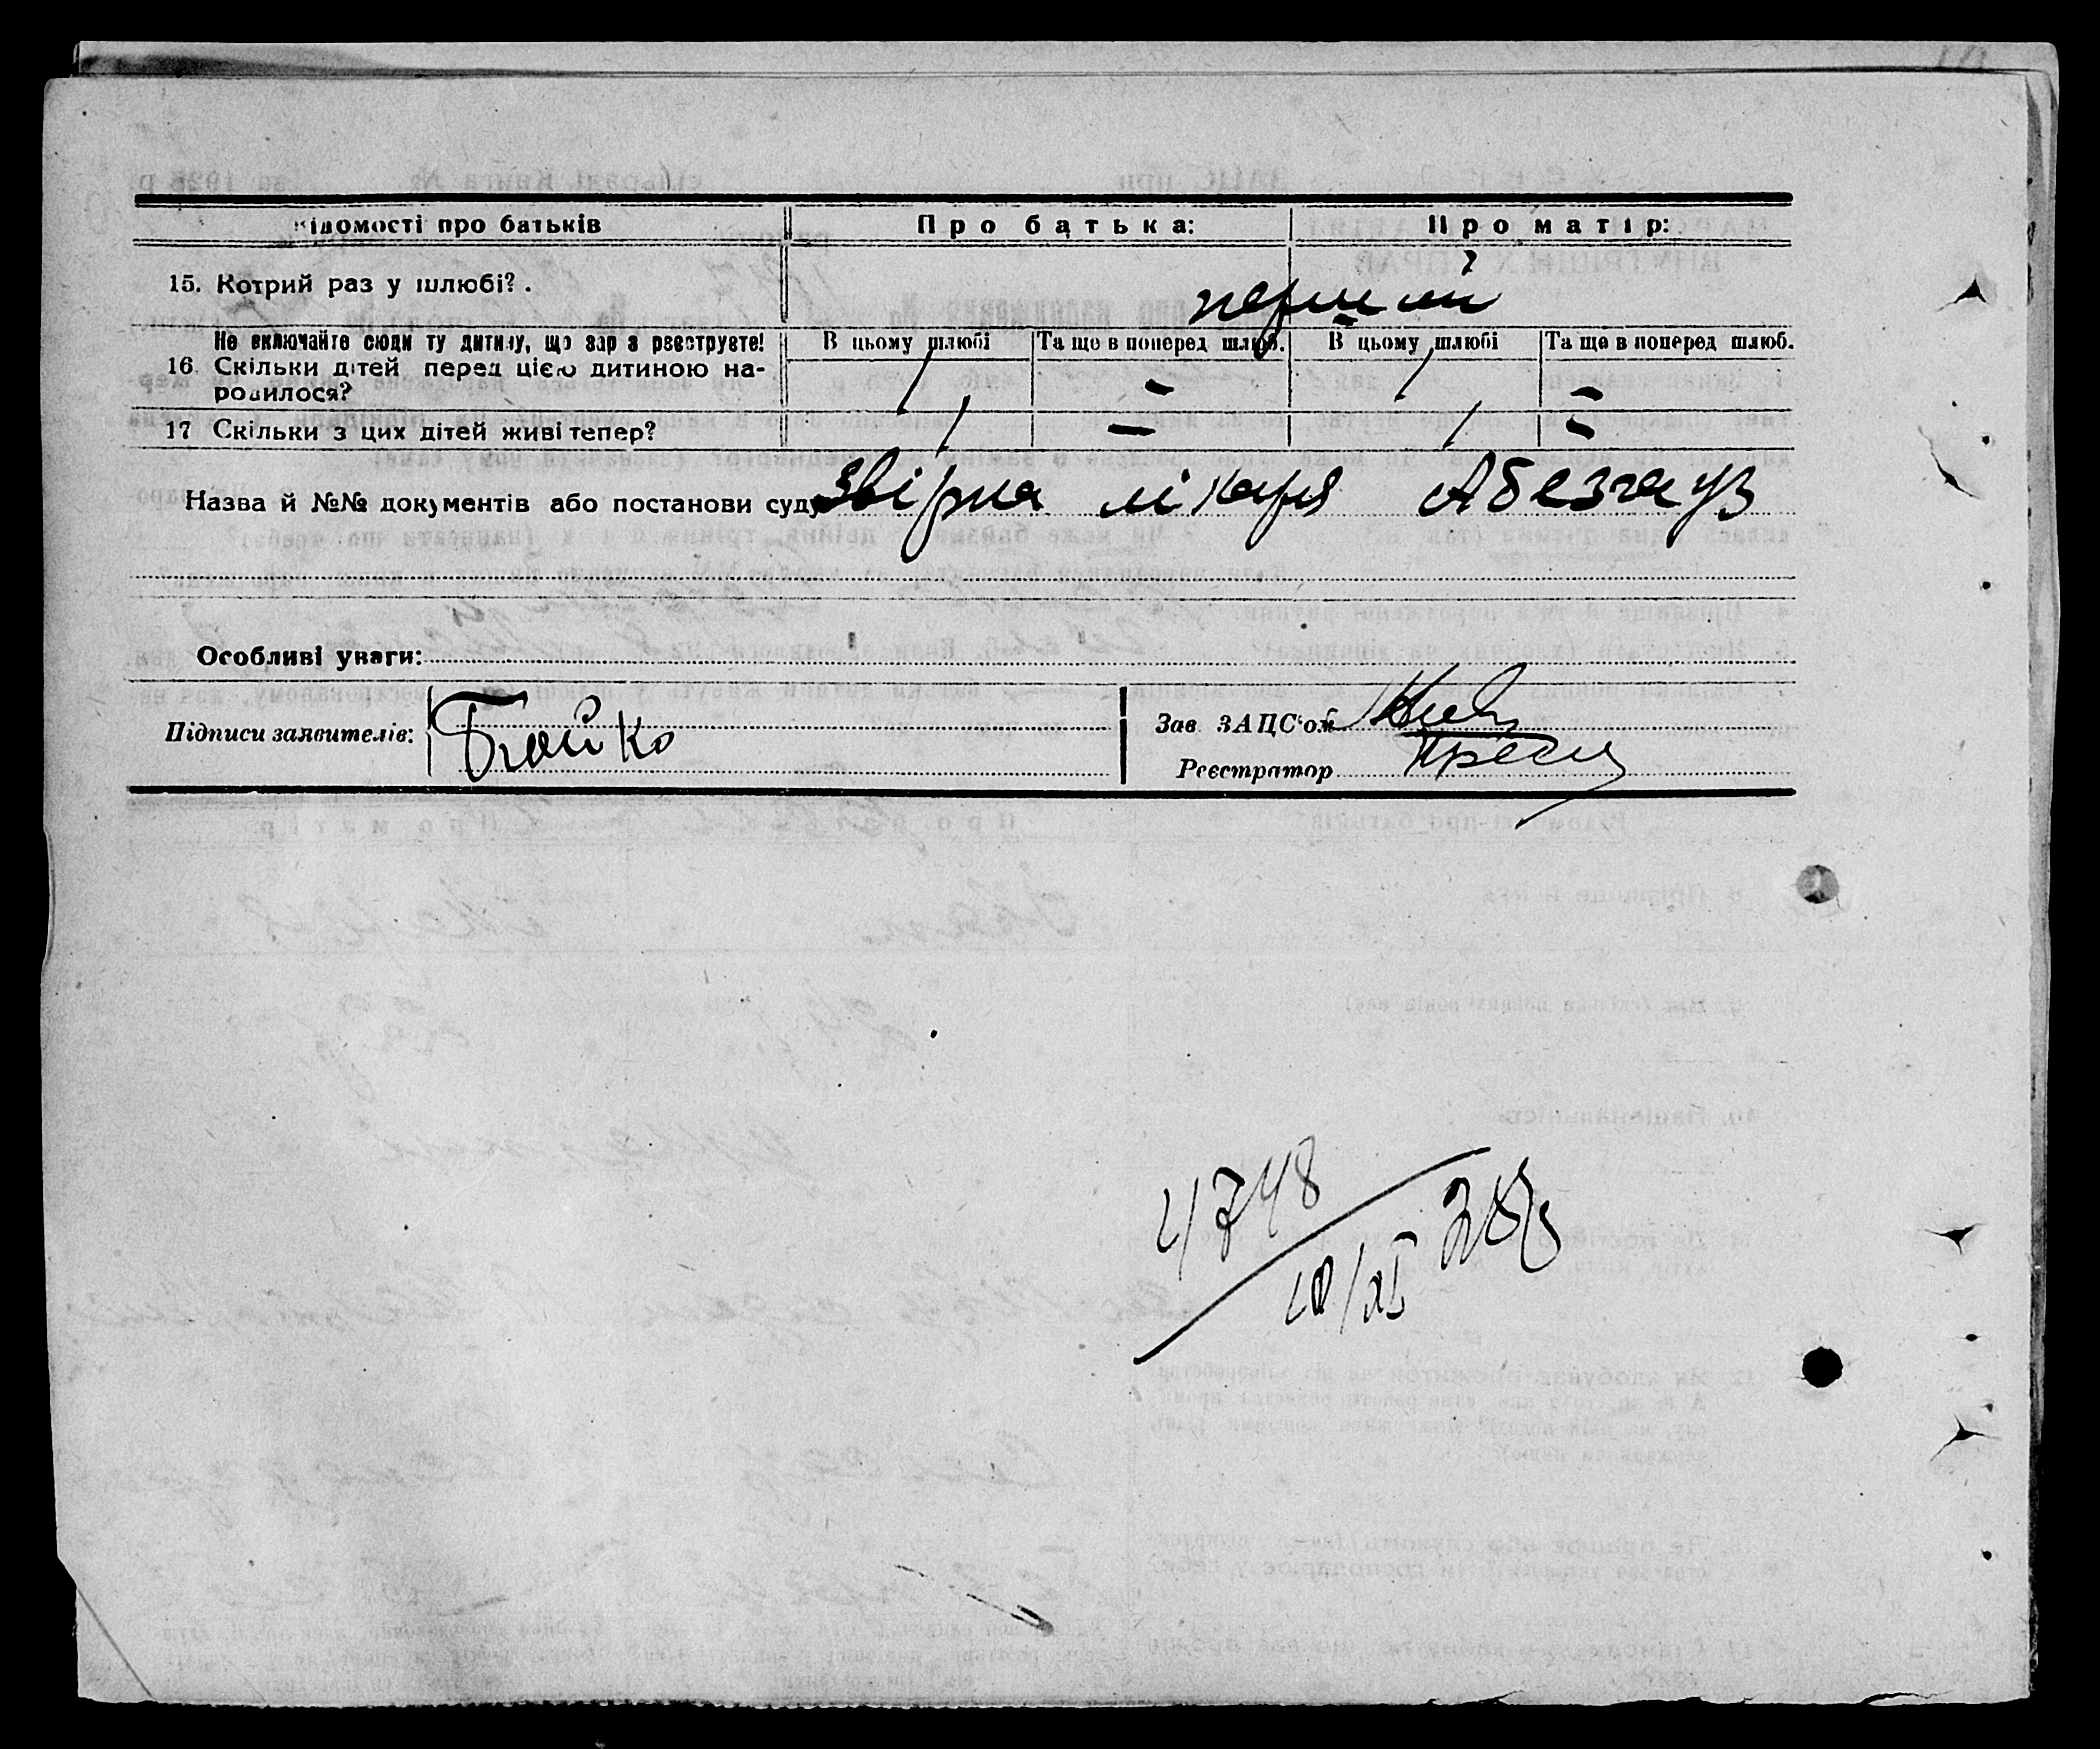 Відомості про батьків Про батька: Про матір:
15. Котрий раз у шлюбі? . перший
Не включайте сюди ту дитину, що зараз реєструєте! В цьому шлюбі Та ще в поперед шлюб. В цьому шлюбі Та ще в поперед шлюб.
16. Скільки дітей перед цією дитиною на-
родилося? 1 – 1 –
17 Скільки з цих дітей живі тепер? 1 – 1 –
Назва й №№ документів або постанови суду лікаря Абезгауз
Особливі уваги:
Підписи заявителів: Бойко
Зав ЗАЦС'ом
Реєстратор
4748